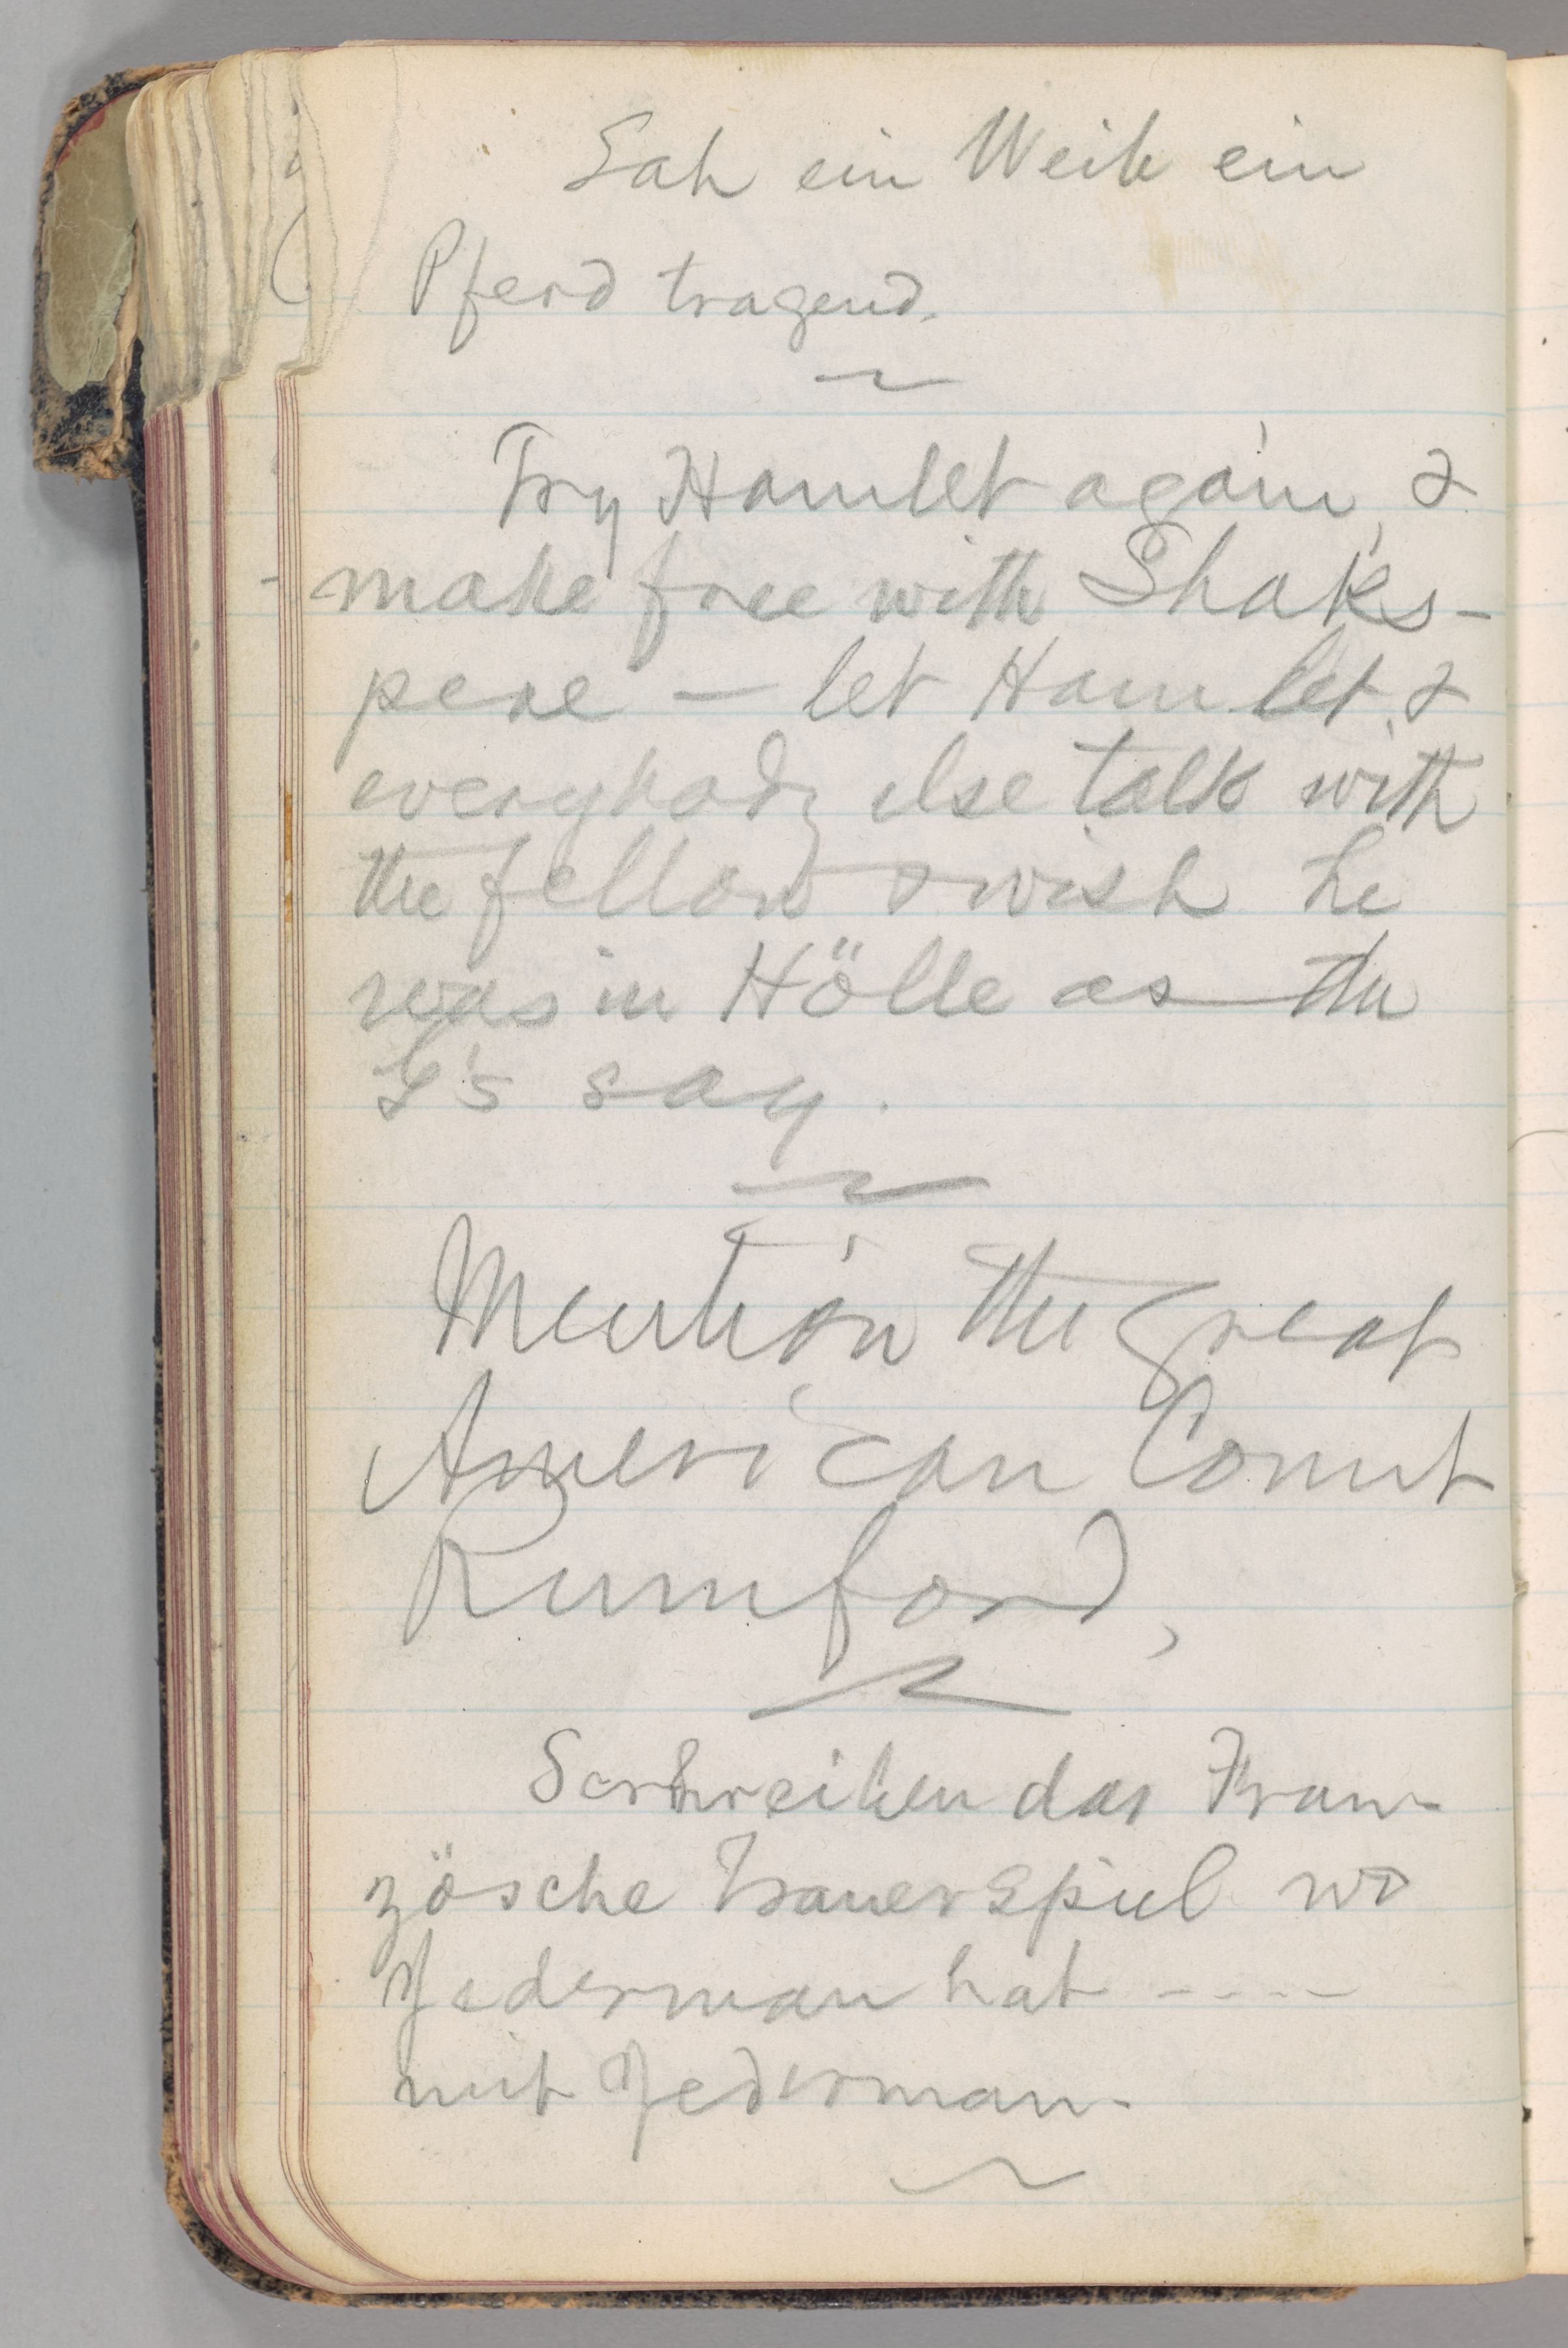 Sah ein Weib ein
Pferd tragend.
Try Hamlet again, &
make free with Shaks-
pere — let Hamlet &
everybody else talk with
the fellow & wish he
was in Hölle as the
G's say.
Mention the great
American Count
Rumford,
Schreiben das Fran-
zösche Trauerspiel wo
Jederman hat ----
mit Jederman.